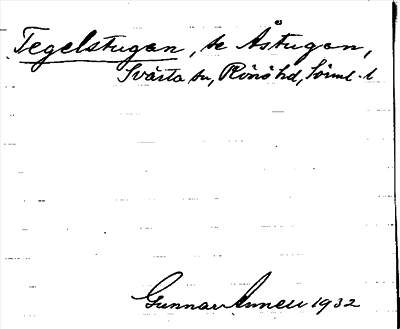 Tegelstugan, se Åstugan,
Svärta sn, Rönö hd, Sörml. l
Gunnar Linnell 1932